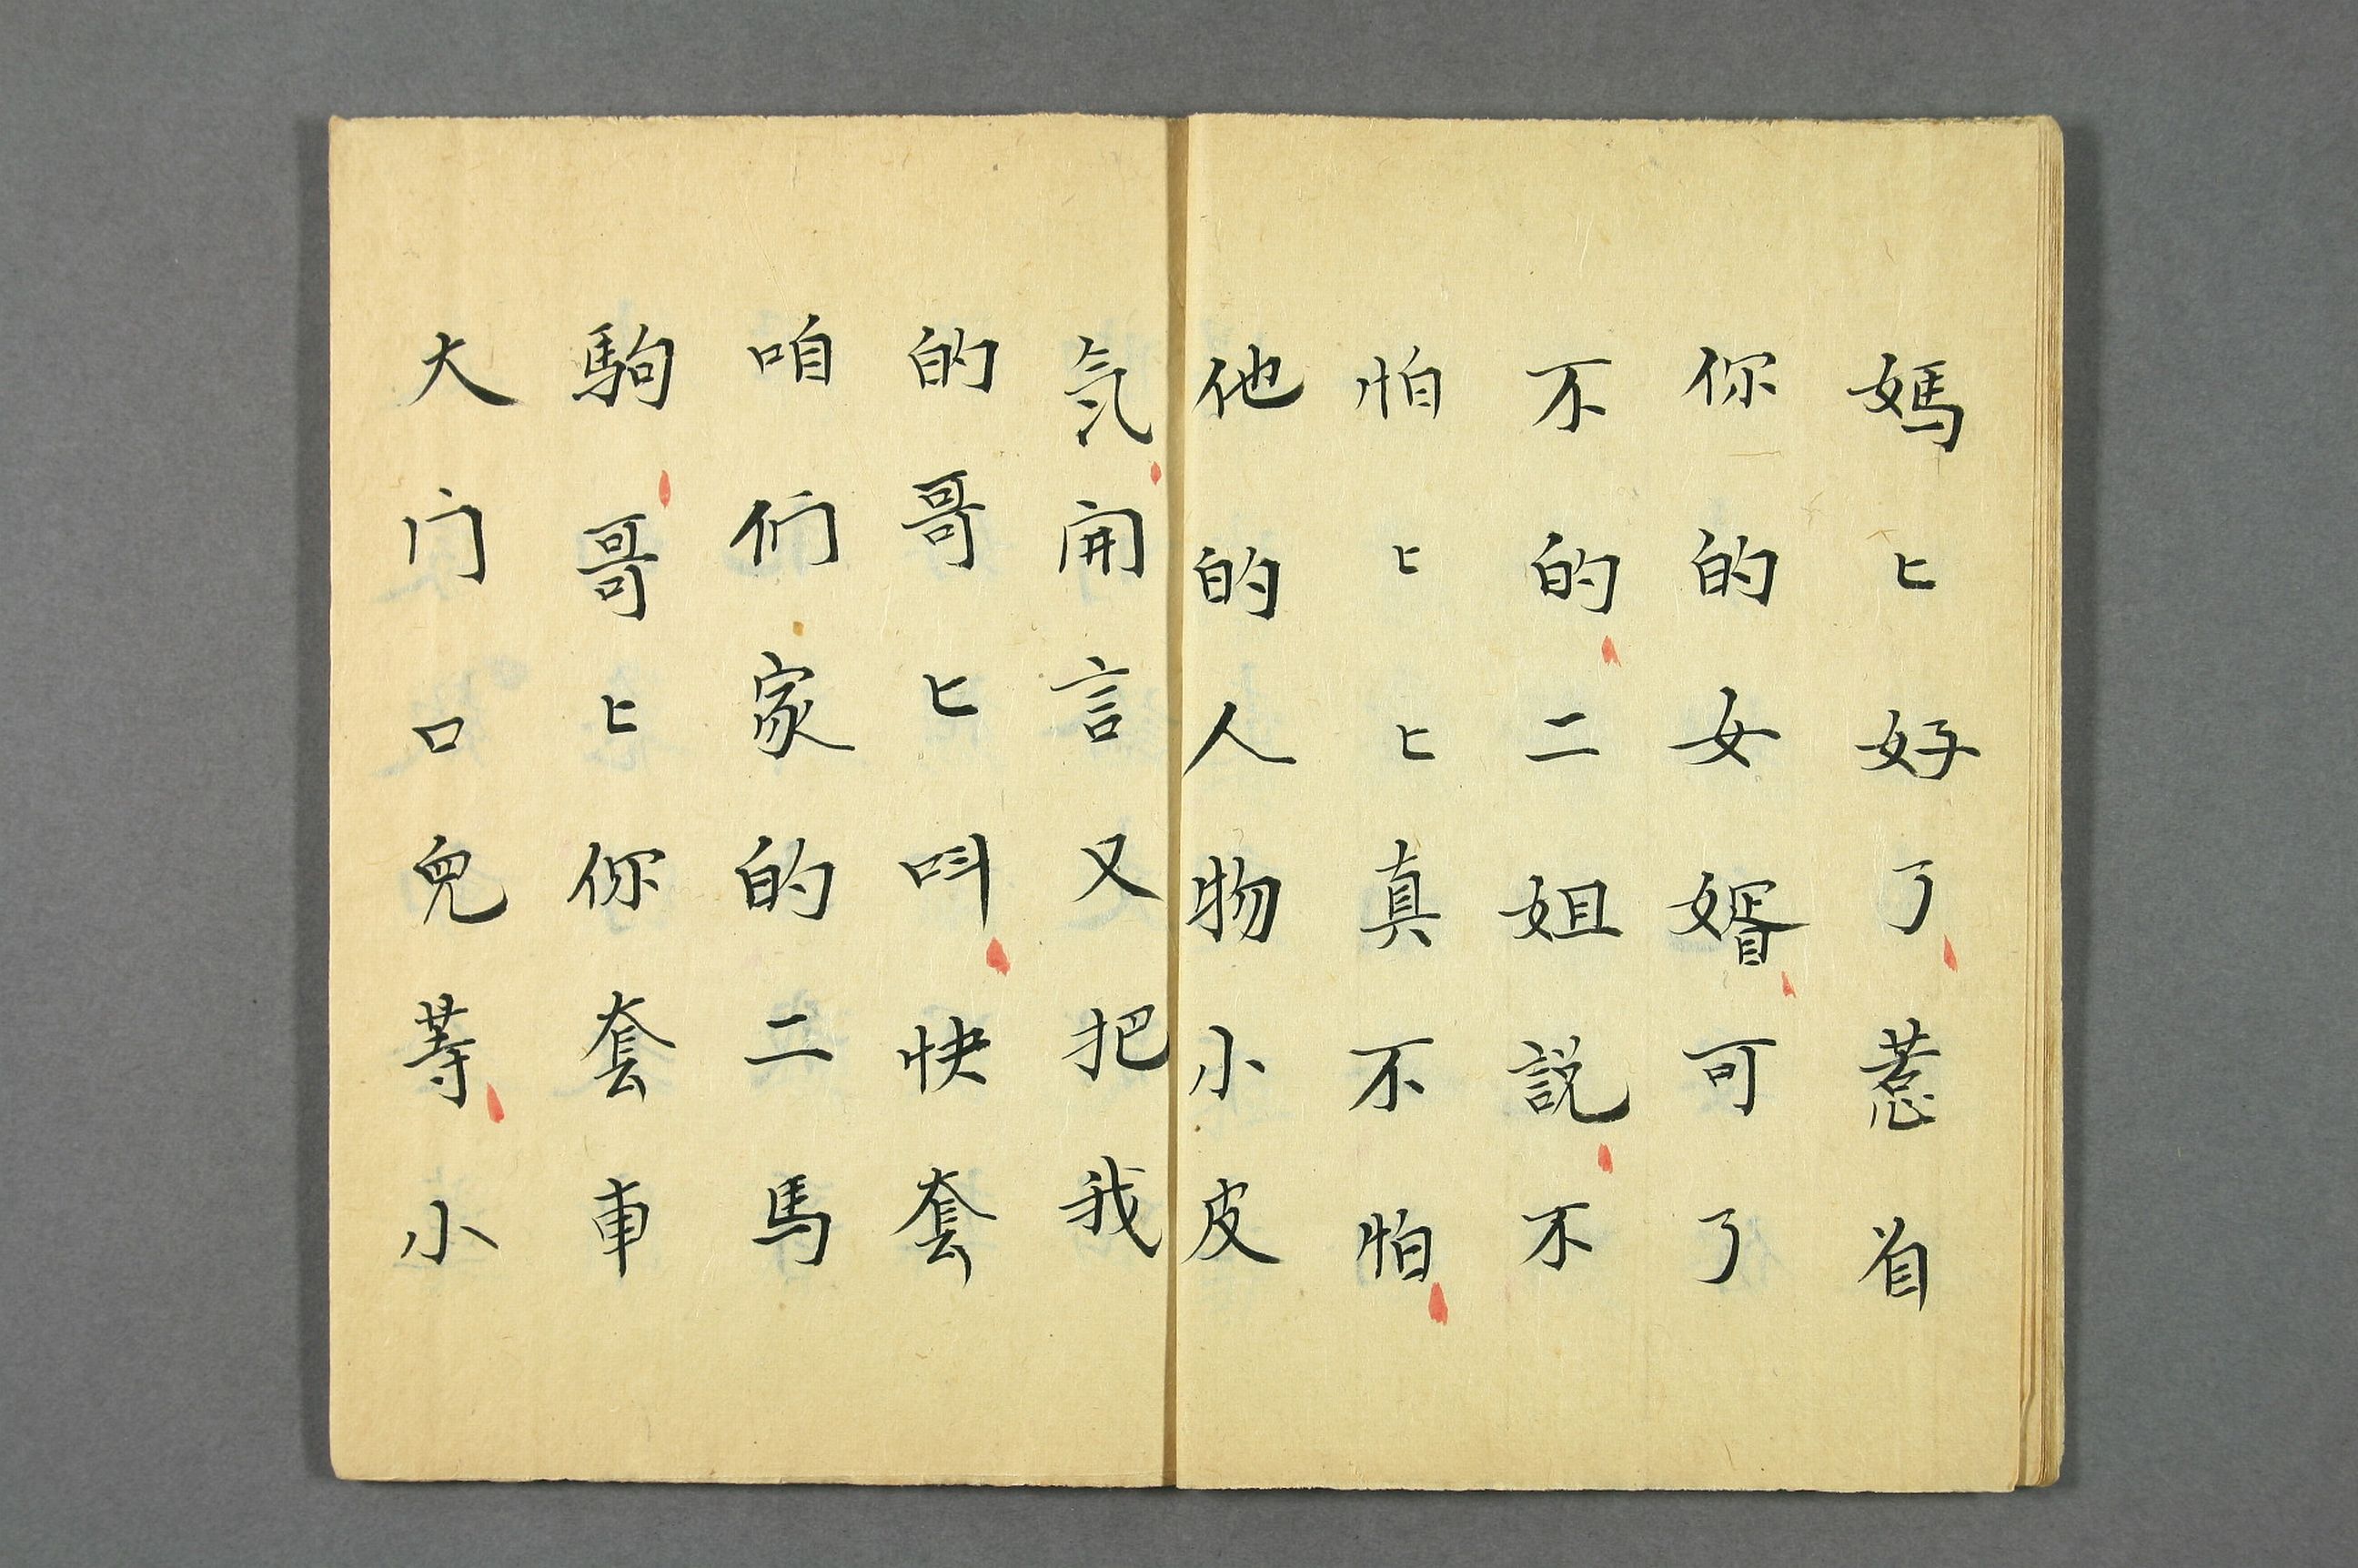 媽匕好了惹着
你的女婿可了
不的二姐説不
怕匕匕真不怕
他的人物小皮
氣開言又把我
的哥匕叫快套
咱们家的二馬
駒哥匕你套車
大门口兒等小